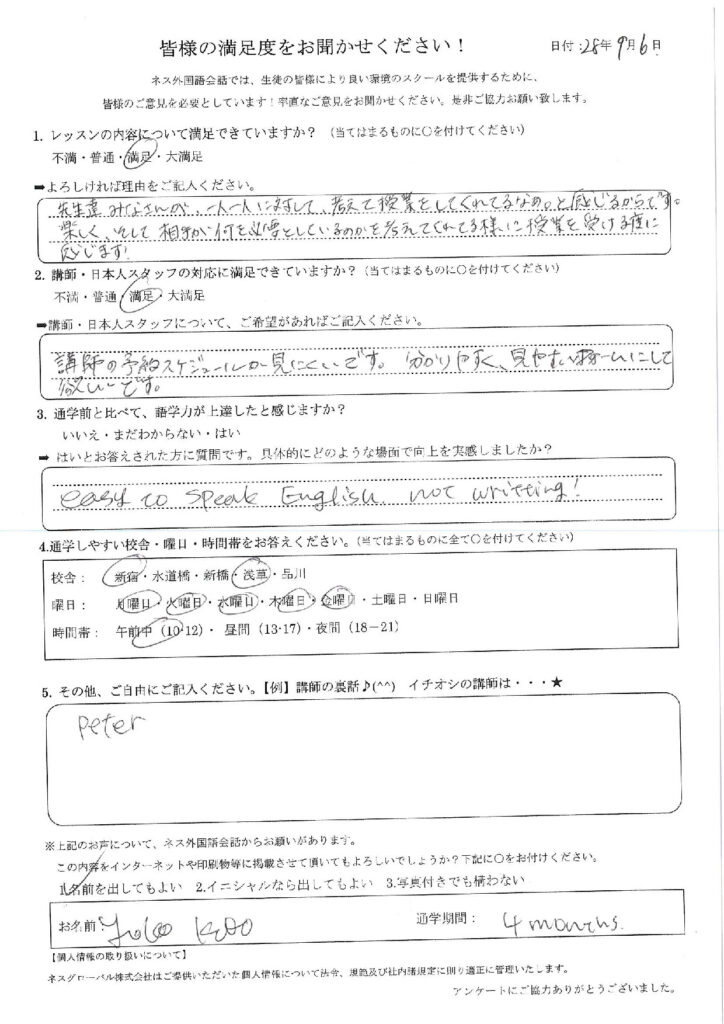 皆様の満足度をお聞かせください！ 日付：28年9月6日
ネス外国語会話では、生徒の皆様により良い環境のスクールを提供するために、
皆様のご意見を必要としています！率直なご意見をお聞かせください。是非ご協力お願い致します。
1. レッスンの内容について満足できていますか？ （当てはまるものに○を付けてください）
不満・普通・満足・大満足
➡よろしければ理由をご記入ください。
先生達みなさんが、一人一人に対して、考えて授業をしてくれてるなぁ。と感じるからです。
楽しく、そして相手が何を必要としているのかを考えてくれてる様に授業を受ける度に
感じます!
2. 講師・日本人スタッフの対応に満足できていますか？（当てはまるものに○を付けてください）
不満・普通・満足・大満足
➡講師・日本人スタッフについて、ご希望があればご記入ください。
講師の予約スケジュールが見にくいです。分かりやすく、見やすいホームにして
欲しいです。
3. 通学前と比べて、語学力が上達したと感じますか？
いいえ・まだわからない・はい
➡ はいとお答えされた方に質問です。具体的にどのような場面で向上を実感しましたか？
easy to speak English. not writting!
4.通学しやすい校舎・曜日・時間帯をお答えください。（当てはまるものに全て○を付けてください）
校舎： 新宿・水道橋・新橋・浅草・品川
曜日： 月曜日・火曜日・水曜日・木曜日・金曜日・土曜日・日曜日
時間帯： 午前中（10-12）・ 昼間（13-17）・夜間（18－21）
5. その他、ご自由にご記入ください。【例】講師の裏話♪(^^) イチオシの講師は・・・★
Peter
※上記のお声について、ネス外国語会話からお願いがあります。
この内容をインターネットや印刷物等に掲載させて頂いてもよろしいでしょうか？下記に○をお付けください。
1.名前を出してもよい 2.イニシャルなら出してもよい 3.写真付きでも構わない
お名前： 通学期間： 4 months.
【個人情報の取り扱いについて】
ネスグローバル株式会社はご提供いただいた個人情報について法令、規範及び社内諸規定に則り適正に管理いたします。
アンケートにご協力ありがとうございました。